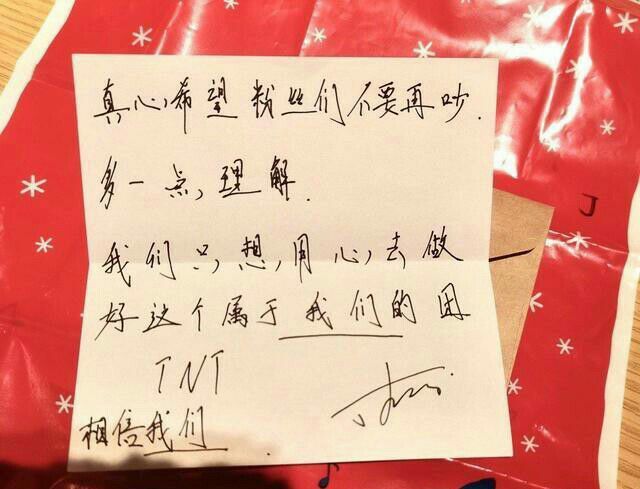 真心希望粉丝们不要再吵.
多一点,理解.
我们只,想,用心,去做
好这个属于我们的团
TNT
相信我们.
J